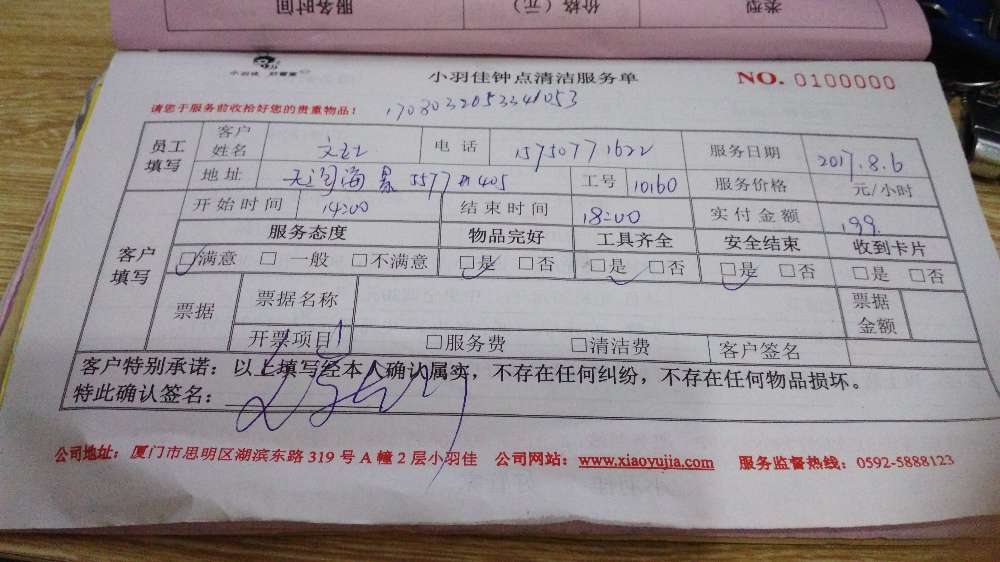 类型 价格（元） 服务时间
小羽佳 好管家
小羽佳钟点清洁服务单 NO. 0100000
请您于服务前收拾好您的贵重物品！
员工填写 客户姓名 电话 15750771622 服务日期 2017.8.6
地址 工号 10160 服务价格 元/小时
客户填写 开始时间 14:00 结束时间 18:00 实付金额 199.
服务态度 物品完好 工具齐全 安全结束 收到卡片
□满意 □一般 □不满意 □是 □否 □是 □否 □是 □否 □是 □否
票据 票据名称 票据金额
开票项目 □服务费 □清洁费 客户签名
客户特别承诺：以上填写经本人确认属实，不存在任何纠纷，不存在任何物品损坏。
特此确认签名：
公司地址：厦门市思明区湖滨东路 319 号 A 幢 2 层小羽佳 公司网站：www.xiaoyujia.com 服务监督热线：0592-5888123